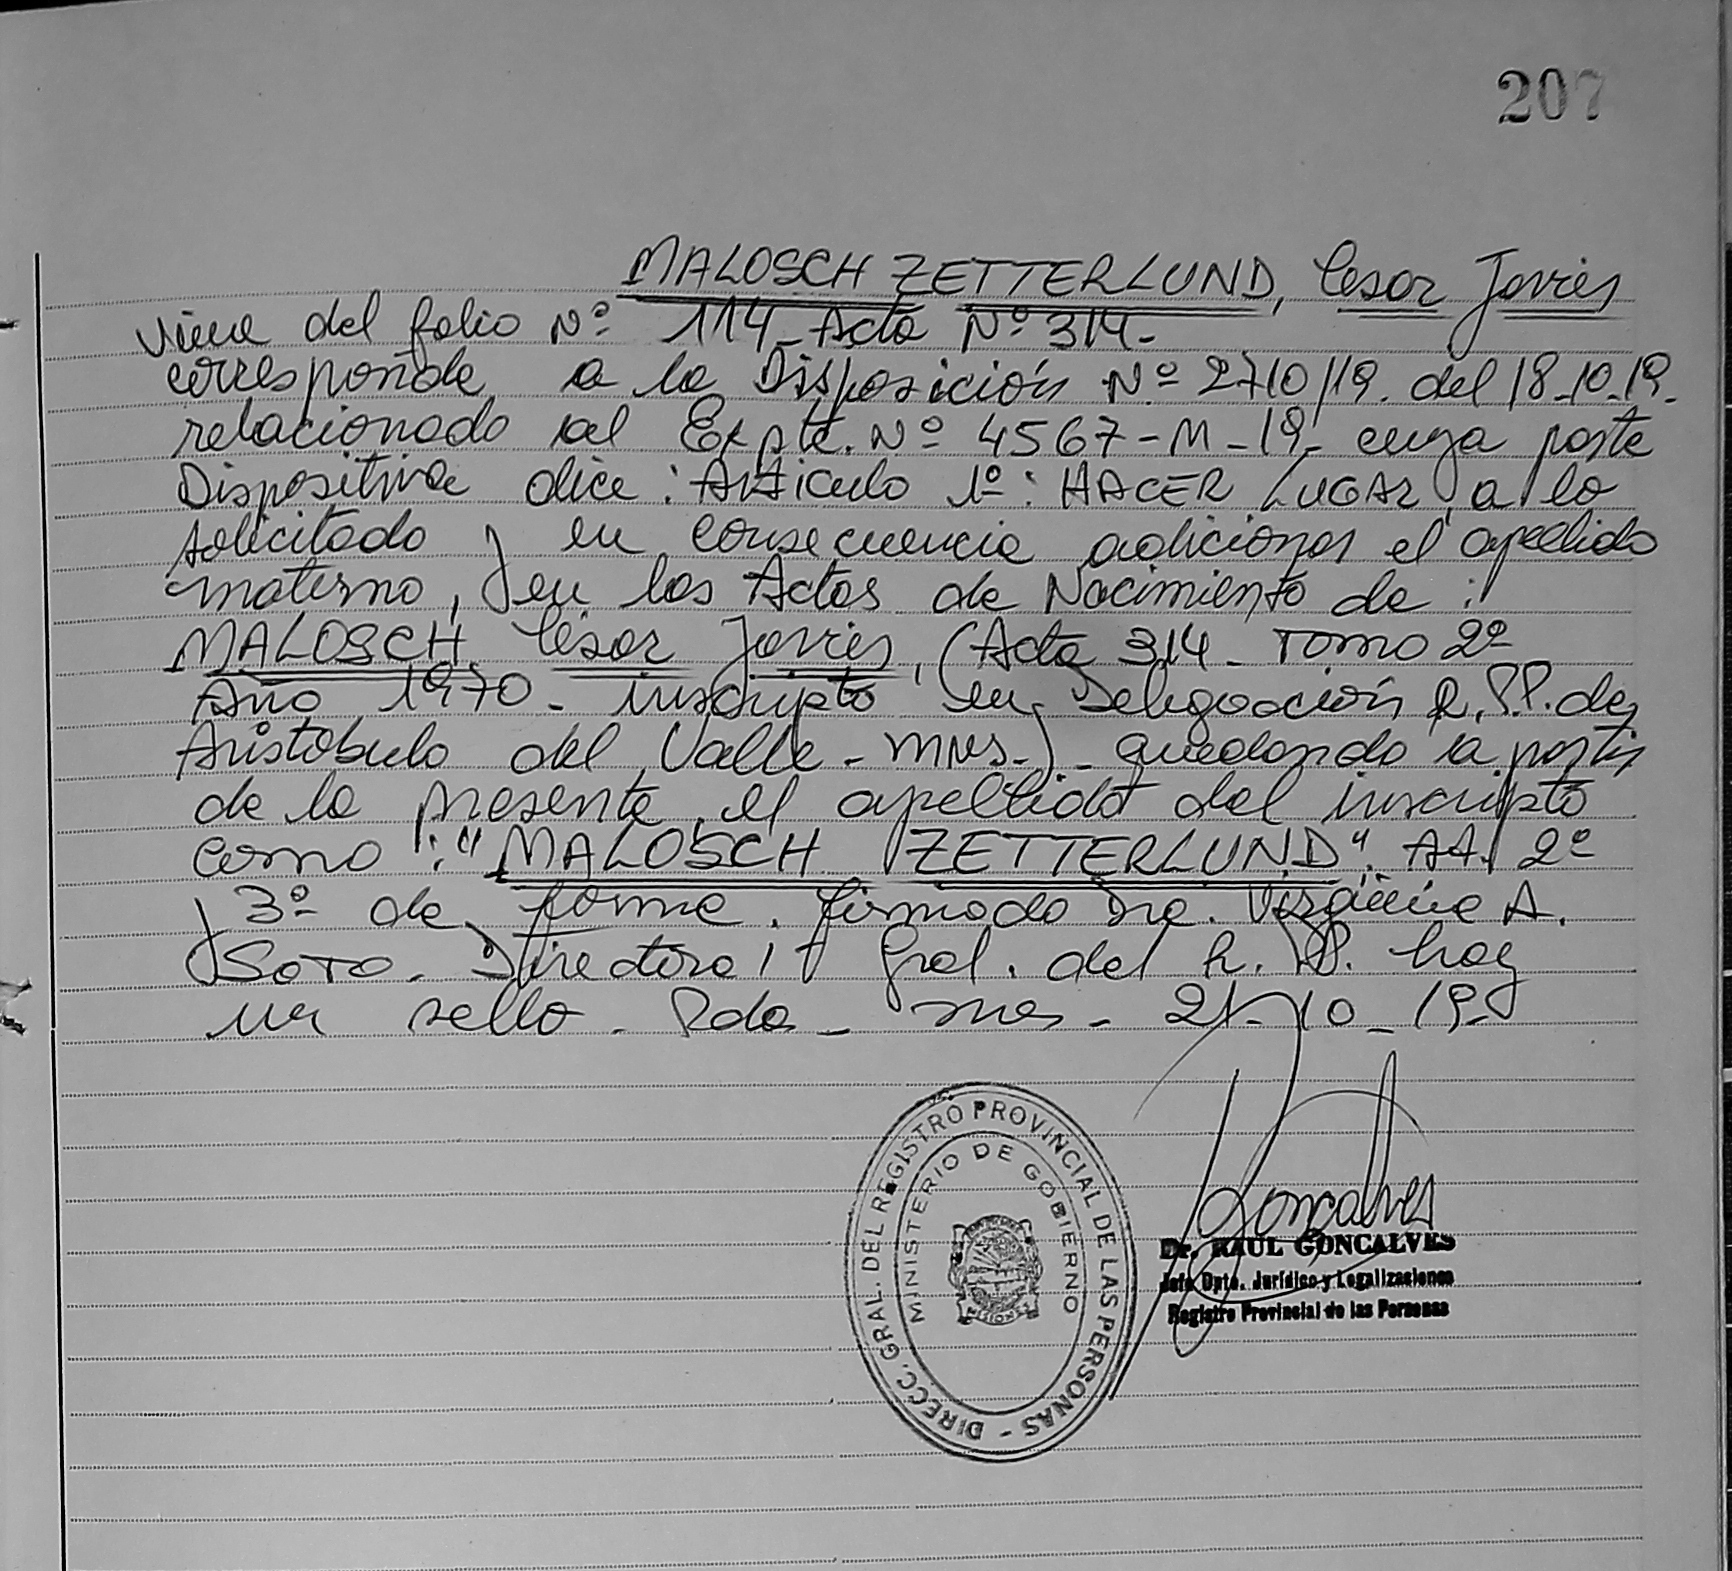 207
MALOSCH ZETTERLUND, César Javier
Viene del folio Nº 114 - Acta Nº 314 -
corresponde a la Disposición Nº 2710/19. del 18-10-19.
relacionado al Expte. Nº 4567 - M - 19 - cuya parte
Dispositiva dice: Artículo 1º: HACER LUGAR a lo
solicitado y en consecuencia adicionar el apellido
materno, en las Actas de Nacimiento de:
MALOSCH, César Javier, (Acta 314 - Tomo 2º
Año 1970 - inscripto en Delegación R.P.P. de
Aristóbulo del Valle - Mnes.) - quedando a partir
de la presente el apellido del inscripto
como: "MALOSCH ZETTERLUND". AA. 2º
y 3º de forma. firmado Dra. Virginia A.
SOTO - Directora Gral. del R.P. hay
un sello - Pdas - mnes - 21-10-19
DIRECC. GRAL. DEL REGISTRO PROVINCIAL DE LAS PERSONAS -
MINISTERIO DE GOBIERNO
MISIONES
Goncalves
Dr. RAUL GONCALVES
Jefe Dpto. Jurídico y Legalizaciones
Registro Provincial de las Personas